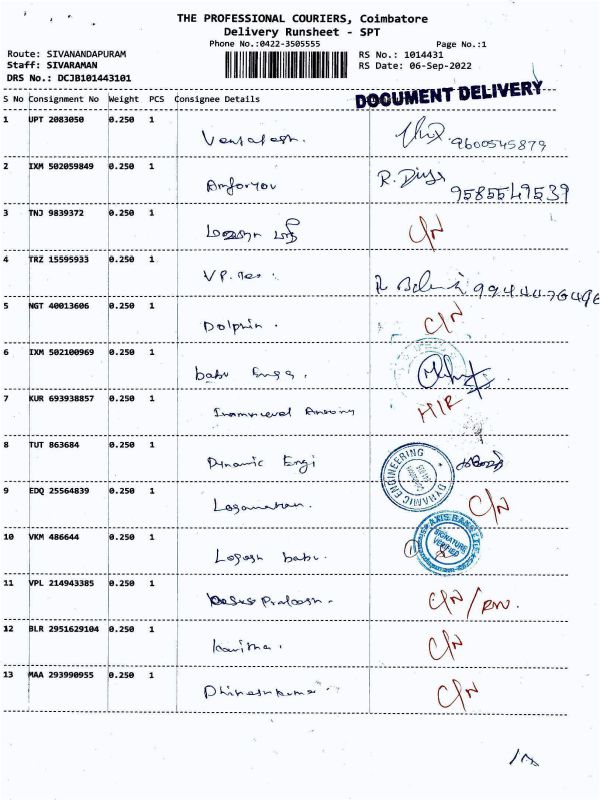 THE PROFESSIONAL COURIERS, Coimbatore
Delivery Runsheet - SPT
Phone No.:0422-3505555 Page No.:1
Route: SIVANANDAPURAM RS No.: 1014431
Staff: SIVARAMAN RS Date: 06-Sep-2022
DRS No.: DCJB101443101
DOCUMENT DELIVERY
S No Consignment No Weight PCS Consignee Details
1 UPT 2083050 0.250 1 9600545879
2 IXM 502059849 0.250 1 Amforyou R. Divya 9585549539
3 TNJ 9839372 0.250 1 C/N
4 TRZ 15595933 0.250 1 V.P.
5 NGT 40013606 0.250 1 Dolphin. C/N
6 IXM 502100969 0.250 1 babu Engg.
7 KUR 693938857 0.250 1
8 TUT 863684 0.250 1 Dynamic Engi DYNAMIC ENGINEERING
9 EDQ 25564839 0.250 1 Loganathan. C/N
10 VKM 486644 0.250 1 Logesh babu. AXIS BANK LTD SIGNATURE VERIFIED
11 VPL 214943385 0.250 1 Prakash. C/N
12 BLR 2951629104 0.250 1 Kavitha. C/N
13 MAA 293990955 0.250 1 Dhineshkumar C/N